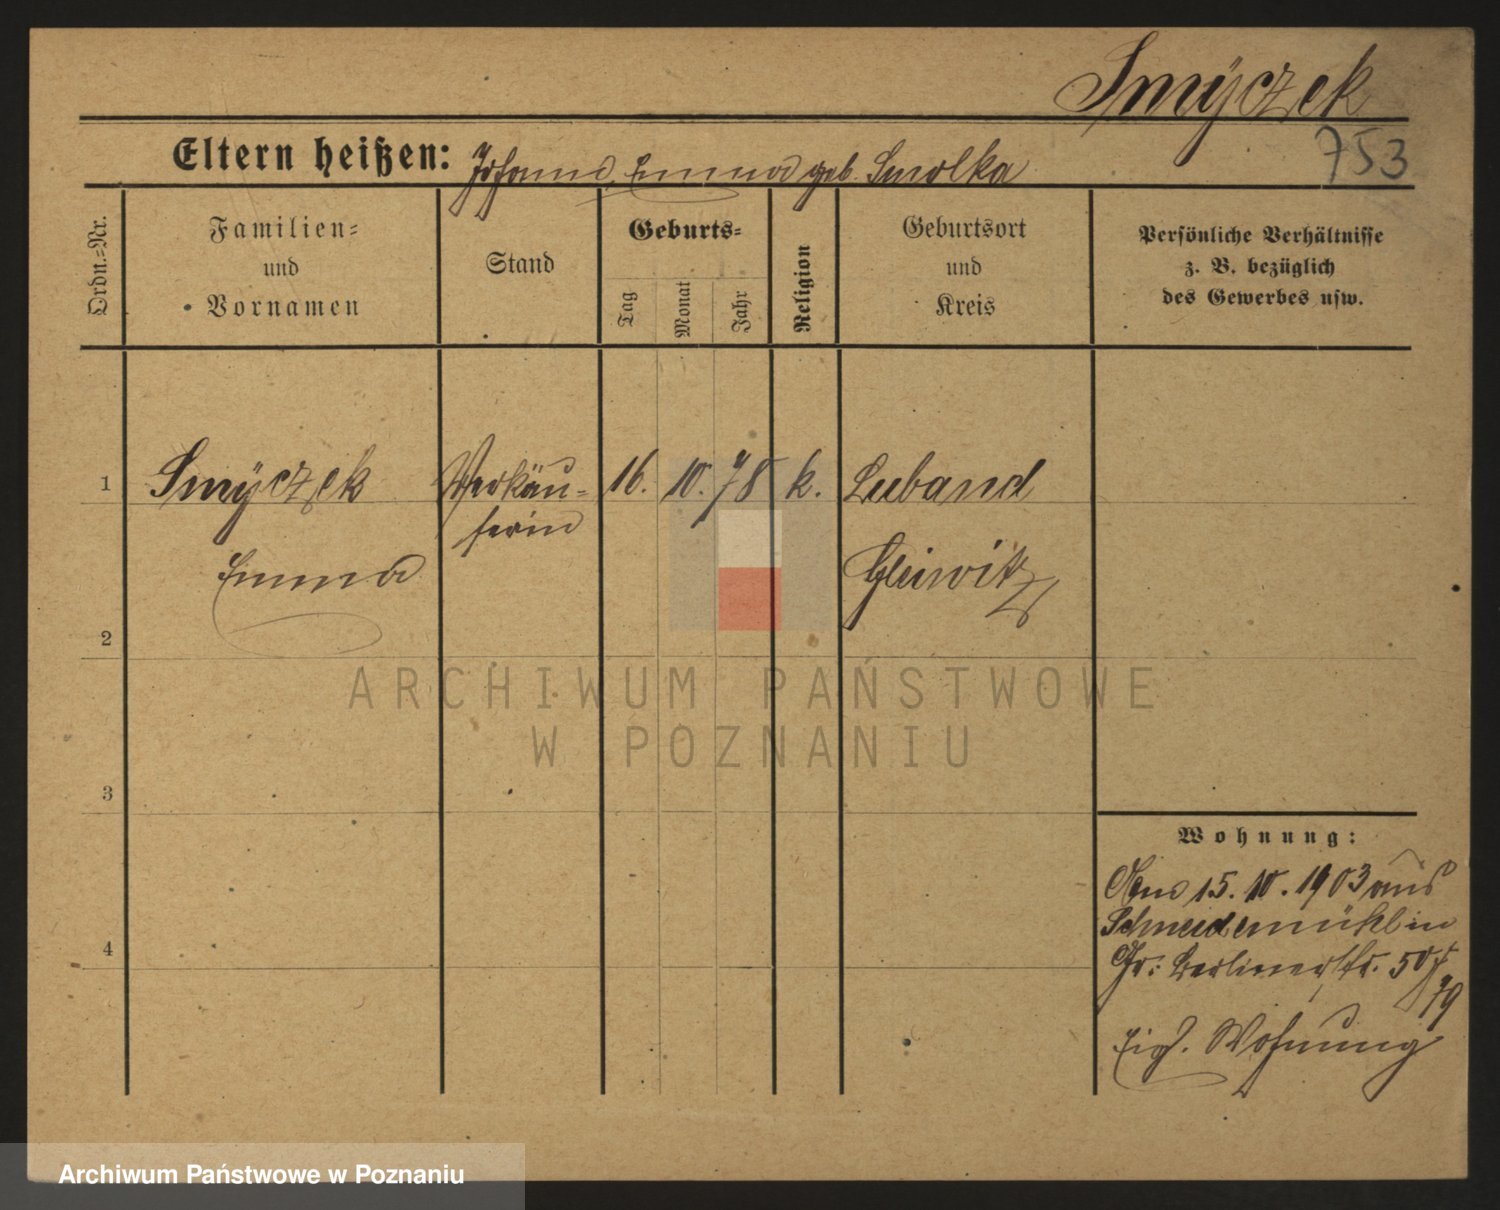 Smÿczek
753
Eltern heißen: Johann, Emma geb. Smolka
Ordn.-Nr.
Familien-
und
Vornamen
Stand
Geburts-
Tag
Monat
Jahr
Religion
Geburtsort
und
Kreis
Persönliche Verhältnisse
z. B. bezüglich
des Gewerbes usw.
1
Smÿczek
Emma
Verkäu-
ferin
16.
10.
78
k.
Laband
Gleiwitz
2
3
4
Wohnung:
15. 10. 1903 aus
Schneidemühl in
Gr: Berlinerstr. 50
Eig. Wohnung
ARCHIWUM PAŃSTWOWE
W POZNANIU
Archiwum Państwowe w Poznaniu